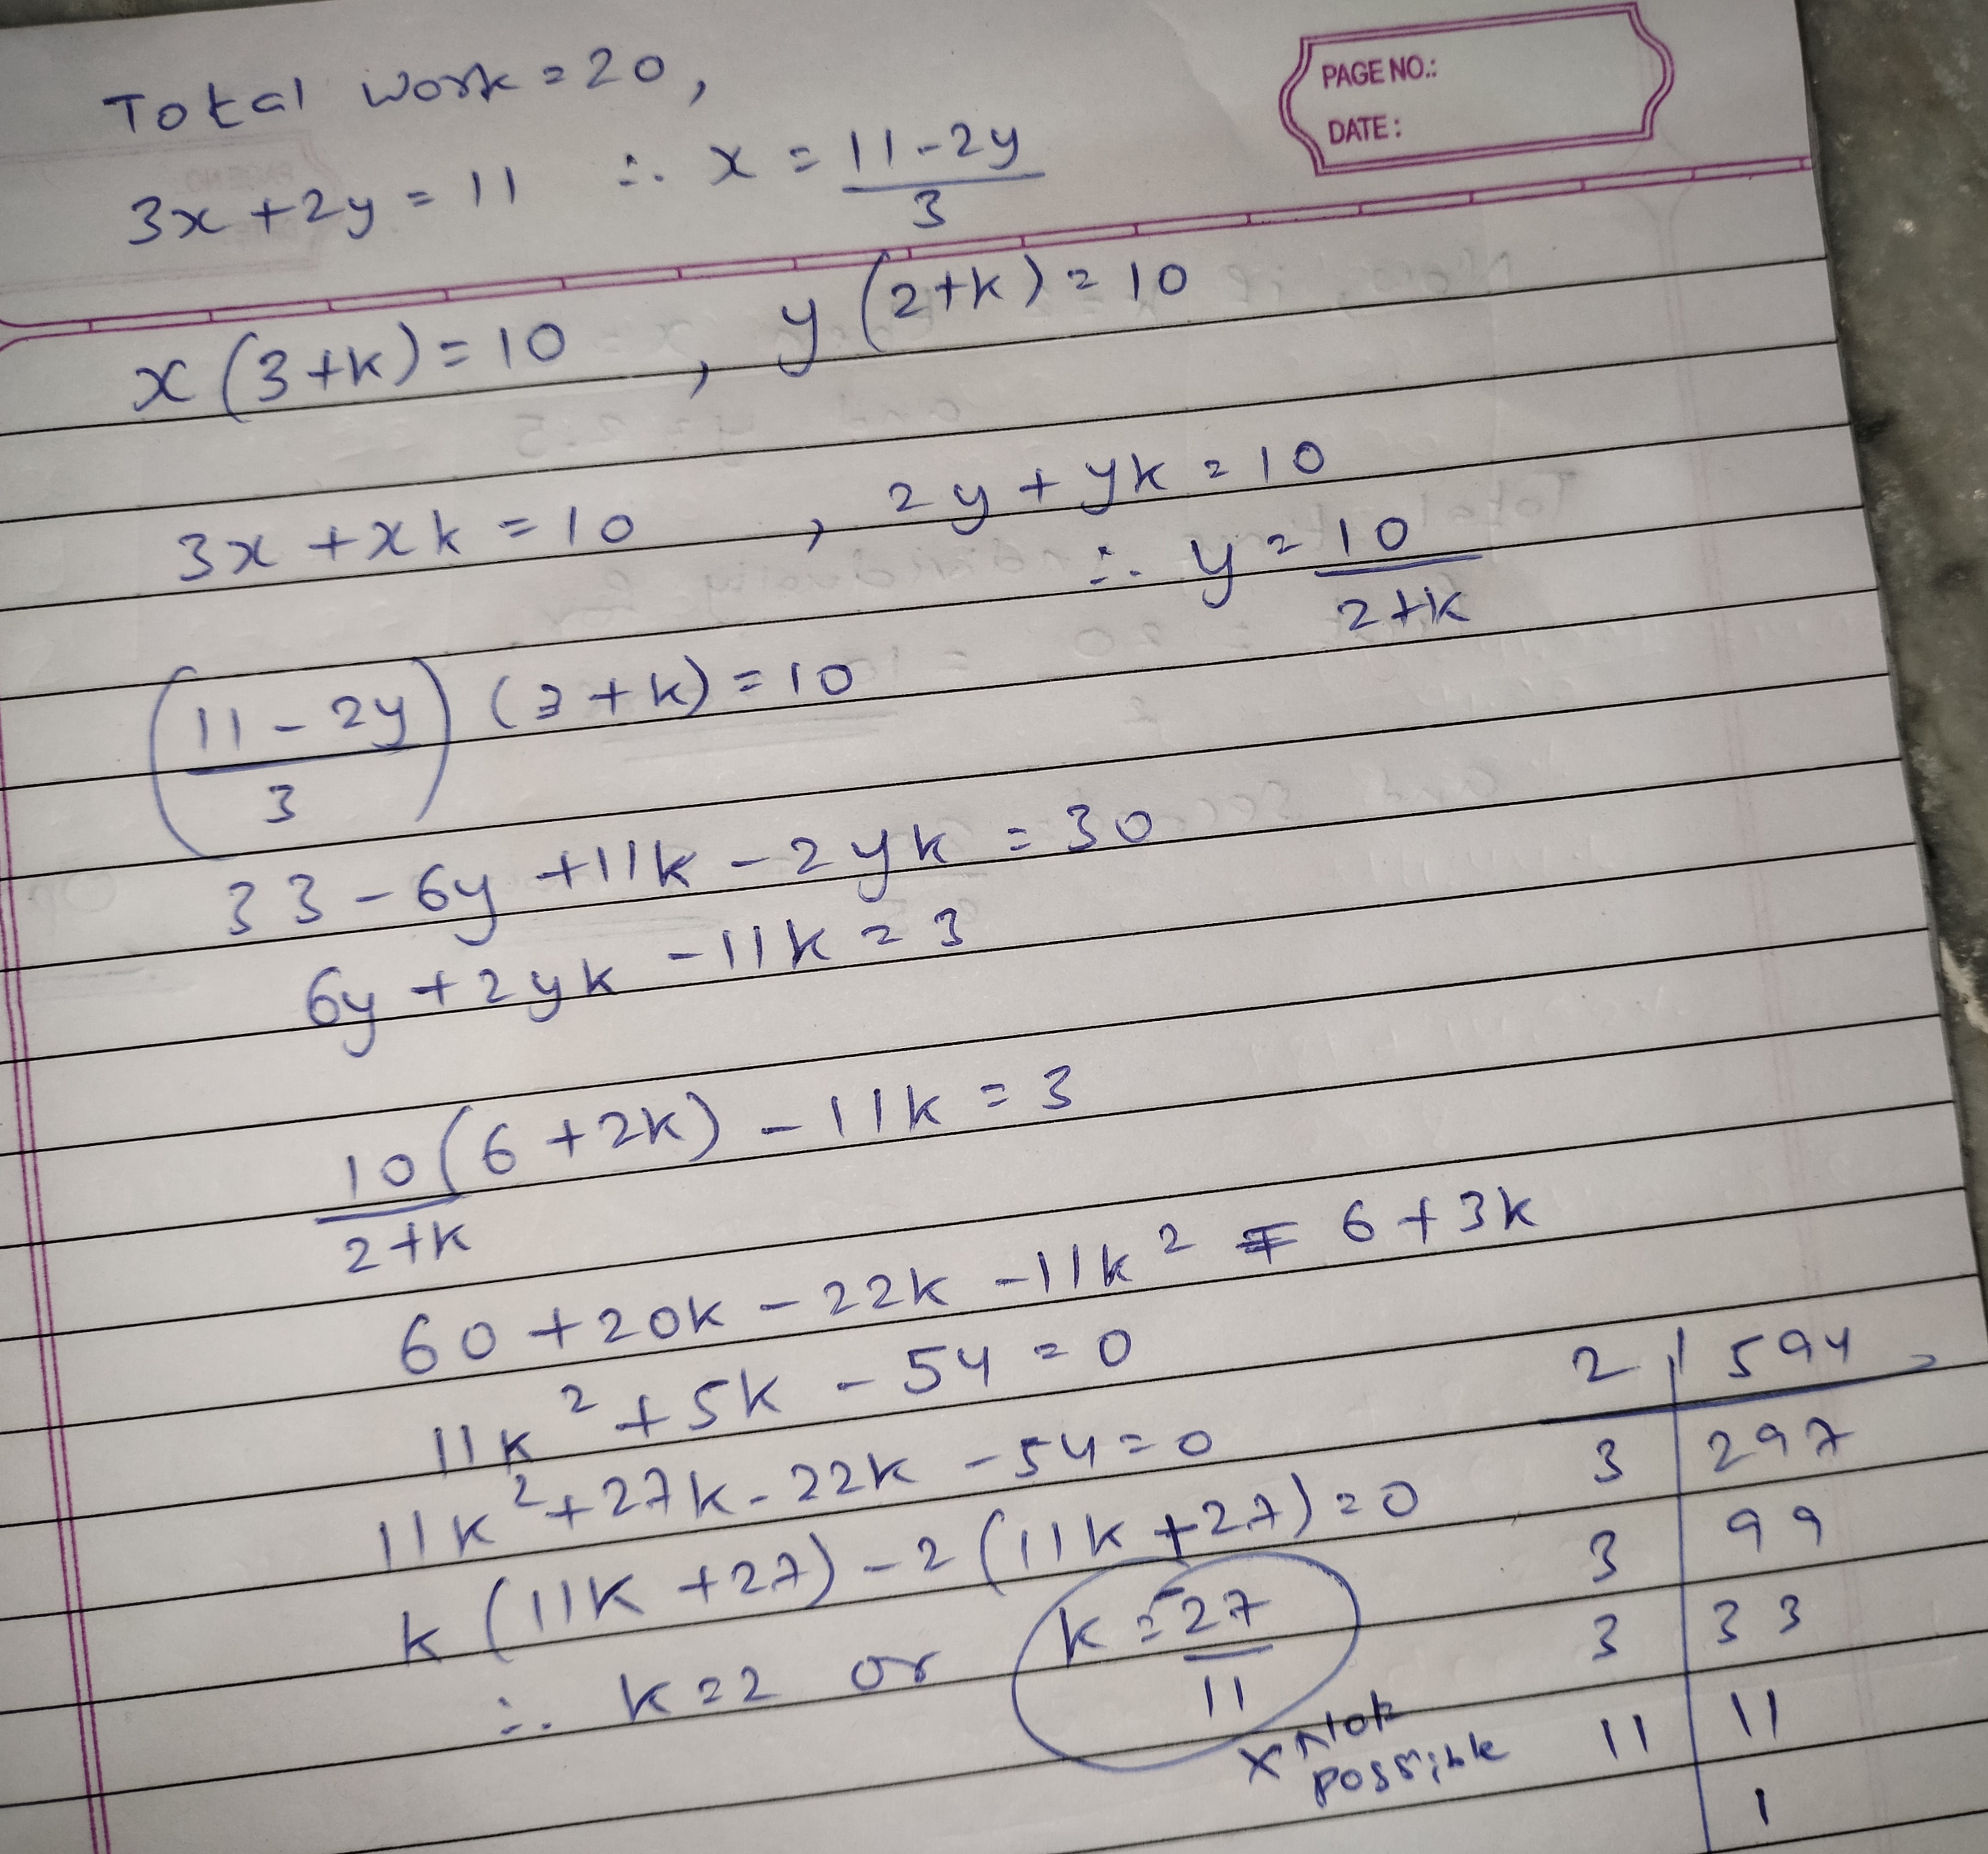 PAGE NO.:
DATE:
Total work = 20,
3x + 2y = 11 ∴ x = (11-2y)/3
x(3+k) = 10 , y(2+k) = 10
3x + xk = 10 , 2y + yk = 10
∴ y = 10/(2+k)
((11-2y)/3) (3+k) = 10
33 - 6y + 11k - 2yk = 30
6y + 2yk - 11k = 3
10/(2+k) (6+2k) - 11k = 3
60 + 20k - 22k - 11k² = 6 + 3k
11k² + 5k - 54 = 0
11k² + 27k - 22k - 54 = 0
k(11k + 27) - 2(11k + 27) = 0
∴ k = 2 or k = -27/11
x Not
possible
2 | 594
3 | 297
3 | 99
3 | 33
11 | 11
1